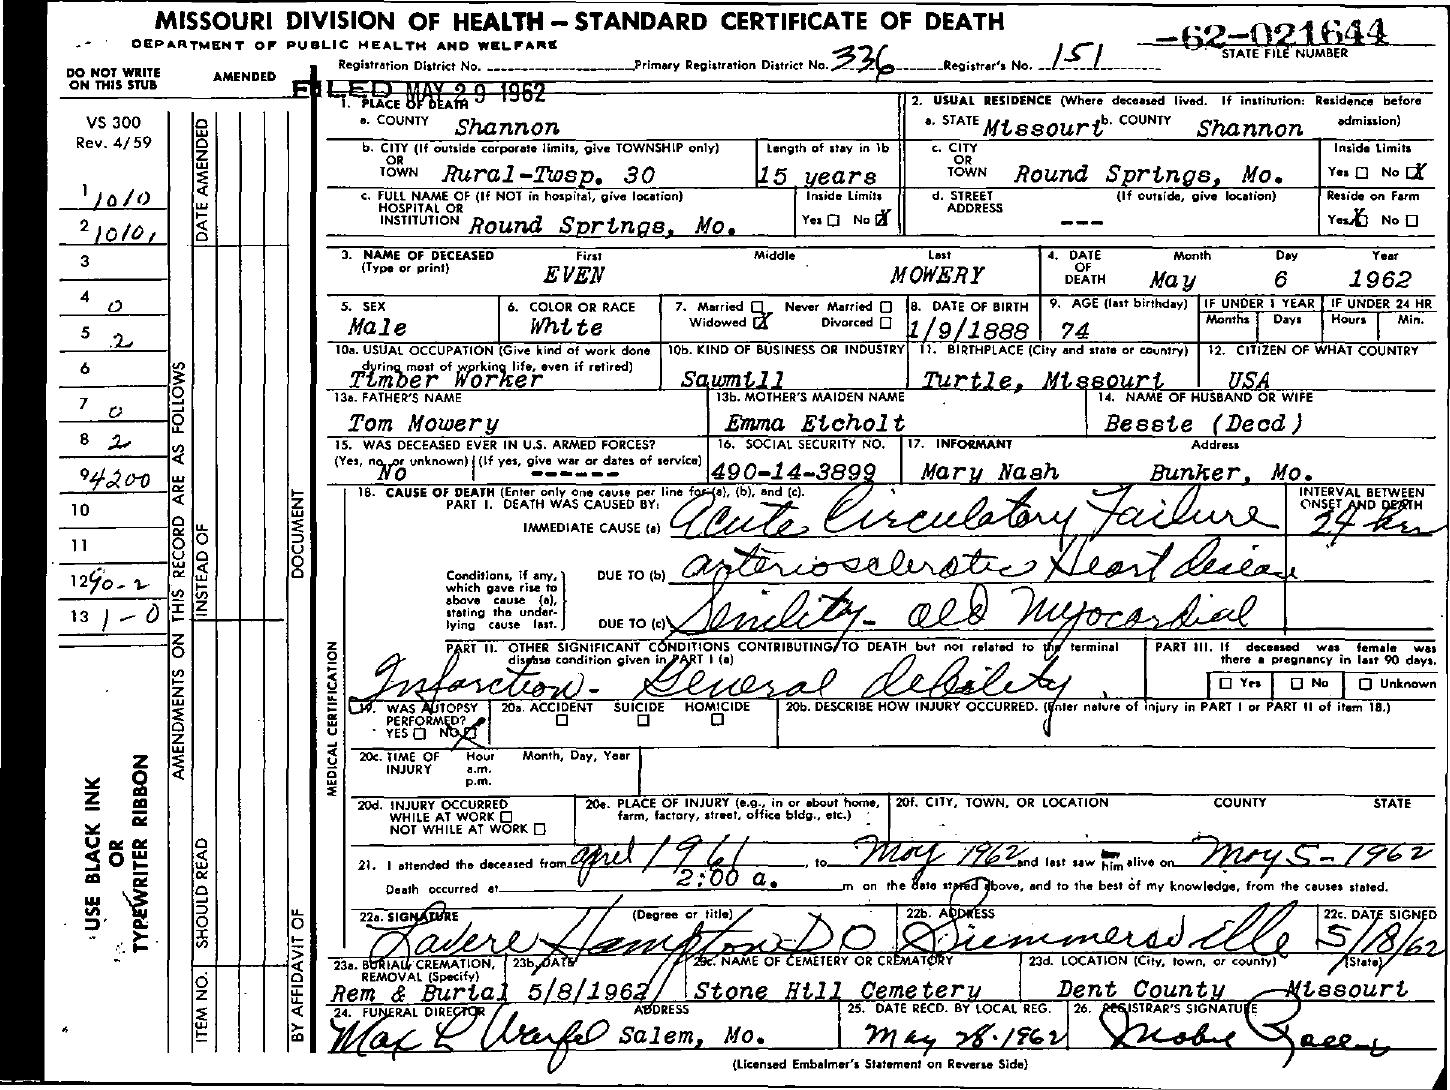 MISSOURI DIVISION OF HEALTH — STANDARD CERTIFICATE OF DEATH
DEPARTMENT OF PUBLIC HEALTH AND WELFARE
-62-021644
STATE FILE NUMBER
Registration District No. Primary Registration District No. 336 Registrar's No. 151
DO NOT WRITE ON THIS STUB
AMENDED
FILED MAY 29 1962
VS 300
Rev. 4/59
1 1010
2 10101
3
4 0
5 2
6
7 0
8 2
9 4200
10
11
12 90-2
13 1-0
USE BLACK INK
OR
TYPEWRITER RIBBON
AMENDMENTS ON THIS RECORD ARE AS FOLLOWS
DATE AMENDED
INSTEAD OF
SHOULD READ
ITEM NO.
DOCUMENT
BY AFFIDAVIT OF
MEDICAL CERTIFICATION
1. PLACE OF DEATH
a. COUNTY Shannon
2. USUAL RESIDENCE (Where deceased lived. If institution: Residence before admission)
a. STATE Missouri b. COUNTY Shannon
b. CITY (If outside corporate limits, give TOWNSHIP only)
OR
TOWN Rural-Twsp. 30
Length of stay in 1b
15 years
c. CITY
OR
TOWN Round Springs, Mo.
Inside Limits
Yes ☐ No ☒
c. FULL NAME OF (If NOT in hospital, give location)
HOSPITAL OR
INSTITUTION Round Springs, Mo.
Inside Limits
Yes ☐ No ☒
d. STREET ADDRESS (If outside, give location)
---
Reside on Farm
Yes ☒ No ☐
3. NAME OF DECEASED First Middle Last
(Type or print) EVEN MOWERY
4. DATE OF DEATH Month Day Year
May 6 1962
5. SEX
Male
6. COLOR OR RACE
White
7. Married ☐ Never Married ☐
Widowed ☒ Divorced ☐
8. DATE OF BIRTH
1/9/1888
9. AGE (last birthday)
74
IF UNDER 1 YEAR
Months Days
IF UNDER 24 HR
Hours Min.
10a. USUAL OCCUPATION (Give kind of work done during most of working life, even if retired)
Timber Worker
10b. KIND OF BUSINESS OR INDUSTRY
Sawmill
11. BIRTHPLACE (City and state or country)
Turtle, Missouri
12. CITIZEN OF WHAT COUNTRY
USA
13a. FATHER'S NAME
Tom Mowery
13b. MOTHER'S MAIDEN NAME
Emma Eicholt
14. NAME OF HUSBAND OR WIFE
Bessie (Decd)
15. WAS DECEASED EVER IN U.S. ARMED FORCES?
(Yes, no, or unknown) (If yes, give war or dates of service)
No ------
16. SOCIAL SECURITY NO.
490-14-3899
17. INFORMANT Address
Mary Nash Bunker, Mo.
18. CAUSE OF DEATH (Enter only one cause per line for (a), (b), and (c).
PART I. DEATH WAS CAUSED BY:
INTERVAL BETWEEN ONSET AND DEATH
IMMEDIATE CAUSE (a) Acute Circulatory Failure 24 hrs
Conditions, if any, which gave rise to above cause (a), stating the underlying cause last.
DUE TO (b) Arteriosclerotic Heart Disease
DUE TO (c) Senility - old Myocardial
PART II. OTHER SIGNIFICANT CONDITIONS CONTRIBUTING TO DEATH but not related to the terminal disease condition given in PART I (a)
Infarction - General debility.
PART III. If deceased was female was there a pregnancy in last 90 days.
☐ Yes ☐ No ☐ Unknown
19. WAS AUTOPSY PERFORMED?
YES ☐ NO ☒
20a. ACCIDENT SUICIDE HOMICIDE
☐ ☐ ☐
20b. DESCRIBE HOW INJURY OCCURRED. (Enter nature of injury in PART I or PART II of item 18.)
20c. TIME OF INJURY Hour a.m. p.m. Month, Day, Year
20d. INJURY OCCURRED
WHILE AT WORK ☐
NOT WHILE AT WORK ☐
20e. PLACE OF INJURY (e.g., in or about home, farm, factory, street, office bldg., etc.)
20f. CITY, TOWN, OR LOCATION COUNTY STATE
21. I attended the deceased from April 1961, to May 1962 and last saw him alive on May 5-1962
Death occurred at 2:00 a. m on the date stated above, and to the best of my knowledge, from the causes stated.
22a. SIGNATURE (Degree or title)
Lavere Hampton DO
22b. ADDRESS
Summersville
22c. DATE SIGNED
5/8/62
23a. BURIAL, CREMATION, REMOVAL (Specify)
Rem & Burial
23b. DATE
5/8/1962
23c. NAME OF CEMETERY OR CREMATORY
Stone Hill Cemetery
23d. LOCATION (City, town, or county) (State)
Dent County Missouri
24. FUNERAL DIRECTOR ADDRESS
Max L Warfel Salem, Mo.
25. DATE RECD. BY LOCAL REG.
May 28-1962
26. REGISTRAR'S SIGNATURE
(Licensed Embalmer's Statement on Reverse Side)